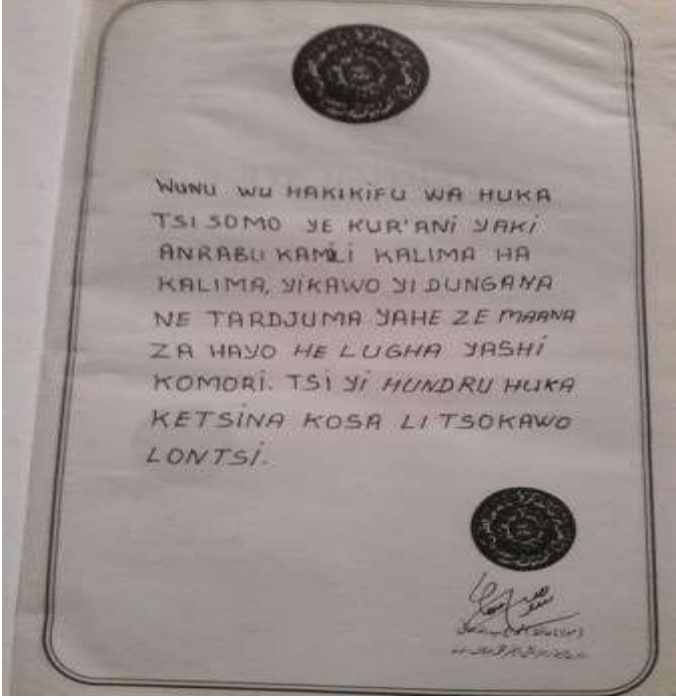 WUNU WU HAKIKIFU WA HUKA
TSI SOMO YE KUR'ANI YAKI
ANRABU KAMILI KALIMA HA
KALIMA, YIKAWO YI DUNGANYA
NE TARDJUMA YAHE ZE MAANA
ZA HAYO HE LUGHA YASHI
KOMORI. TSI YI HUNDRU HUKA
KETSINA KOSA LI TSOKAWO
LONTSI.